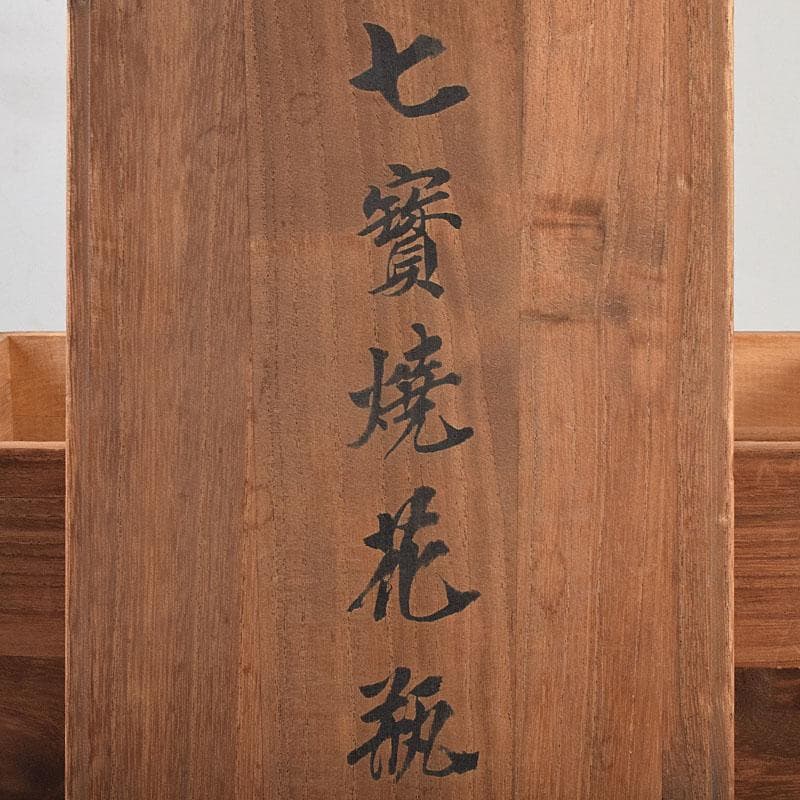 七寶燒花瓶